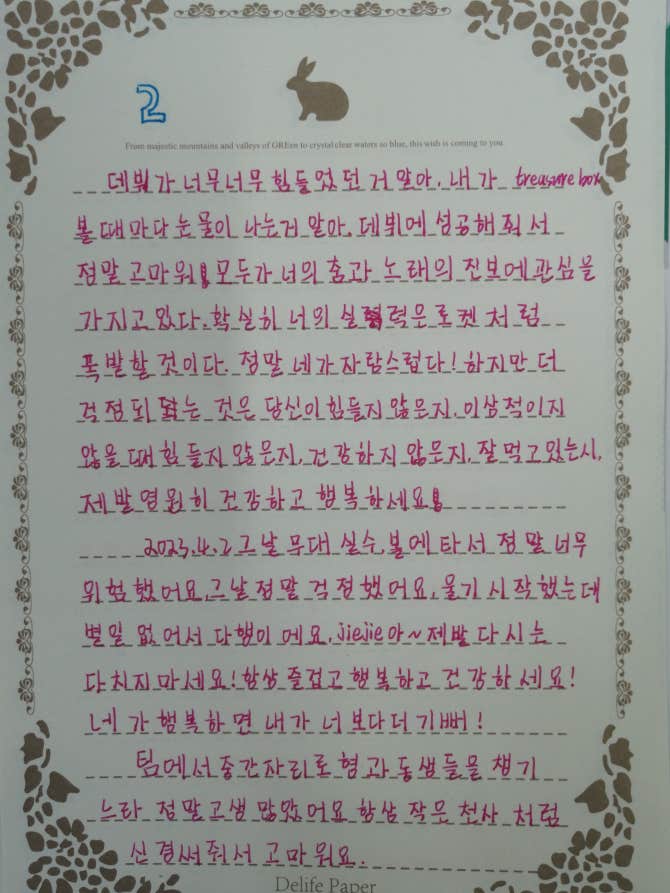 2
From majestic mountains and valleys of GREen to crystal clear waters so blue, this wish is coming to you.
데뷔가 너무너무 힘들었던 거 알아. 내가 treasure box
볼 때마다 눈물이 나는거 알아. 데뷔에 성공해줘서
정말 고마워! 모두가 너의 춤과 노래의 진보에 관심을
가지고 있다. 확실히 너의 실력은 로켓처럼
폭발할 것이다. 정말 네가 자랑스럽다! 하지만 더
걱정되는 것은 당신이 힘들지 않은지. 이상적이지
않을 때 힘들지 않은지, 건강하지 않은지, 잘 먹고 있는시,
제발 영원히 건강하고 행복하세요!
2023.4.2 그날 무대 실수, 불에 타서 정말 너무
위험했어요. 그날 정말 걱정했어요. 울기 시작했는데
별일 없어서 다행이에요. jiejie야~ 제발 다시는
다치지 마세요! 항상 즐겁고 행복하고 건강하세요!
네가 행복하면 내가 너보다 더 기뻐!
팀에서 중간자리로 형과 동생들을 챙기
느라 정말 고생 많았어요 항상 작은 천사처럼
신경써줘서 고마워요.
Delife Paper